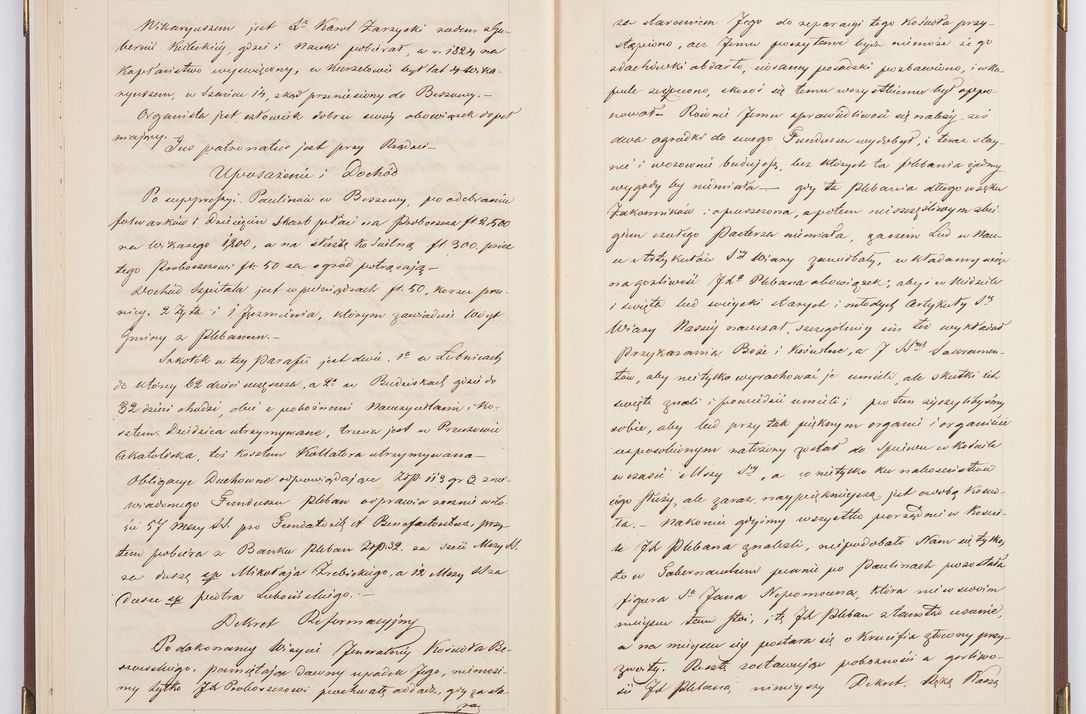 Wikaryuszem jest X. Karol Zarzycki rodem z Gu-
bernii Kieleckiey, gdzie i Nauki pobierał, a r. 1824 na
Kapłaństwo wyświęcony, w Kurzelowie był lat 4 Wika-
ryuszem, w Szańcu 14, zkąd przeniesiony do Beszowy. —
Organista jest człowiek dobrze swóy obowiązek dopeł-
niający. Jus patronatus jest przy Rządzie —
Uposażenie i Dochód
Po suppressyi Paulinów w Beszowy, po odebraniu
folwarków i Dziesięcin Skarb płaci na Proboszcza fl. 2,500
na Wikarego 1200, a na służbę kościelną fl. 300, prócz
tego Proboszczowi fl. 50 za ogród potrącają —
Dochód Szpitala jest w pieniądzach fl. 50, korzec psze-
nicy, 2 Żyta i 1 Jęczmienia, którym zawiaduie Wóyt
Gminy z Plebanem. —
Szkółek w tey Parafii jest dwie, 1a w Lubnicach
do którey 62 dzieci uczęszcza, a 2a w Budziskach gdzie do
32 dzieci chodzi, obie z pobożnemi Nauczycielami i Ko-
sztem Dziedzica utrzymywane, trzecia jest w Przeczowie
Akatolicka, tóż kosztem Kollatora utrzymywana —
Obligacye Duchowne odpowiadające Złp. 113 gr 3 zre-
wiadomego Funduszu Pleban odprawia rocznie w ilo-
ści 57 Mszy SS. pro Fundatoribus et Benefactoribus, przy-
tem pobiera z Banku Pleban Złp 32. za sześć Mszy S.
za duszę śp Mikołaja Trebickiego, a 12 Mszy Wza
Dusze śp Piotra Lubowieckiego. —
Dekret Reformacyjny
Po dokonaney Wizycie Jeneralney Kościoła Be-
szowskiego, pamiętając dawny upadek Jego, niemoże-
my tylko JX Proboszczowi pochwałę oddać, gdy za sta-
za staraniem Jego do reparacyi tego Kościoła przy-
stąpiono, acz Jemu poczytane być niemoże że go
z dachówki obdarto, marmury posadzki pozbawiono, i w ka-
pule zepsuono, skoro się temu wszystkiemu był oppo-
nował — Również Jemu sprawiedliwość się należy, iż
dwa ogródki do swego Funduszu wydobył, i teraz stay-
nie i wozownie buduje, bez których ta Plebania żadney
wygody by niemiała — gdy ta Plebania długo w ręku
Zakonników i opuszczona, a potem nieszczęśliwym zbie-
giem czułego Pasterza niemiała, zaczem Lud w Nau-
ce Artykułów Stey Wiary zaniedbały, wkładamy więc
na gorliwość JXa Plebana obowiązek, aby w Niedziele
i święta lud wieyski starych i młodych Artykuły Stey
Wiary Naszéy nauczał, szczególniey im też wykładał
Przykazania Boże i Kościelne, a 7 SSych Sakramen-
tów, aby nietylko wyrachować je umieli, ale skutki ich
święte znali i powiedzieć umieli; potem życzylibyśmy
sobie, aby lud przy tak pięknym organie i organiście
usposobionym nałożony został do śpiewu w Kościele
w czasie Mszy Stey, a co nietylko ku nabożeństwu
iego służy, ale zaraz naypiękniejszą jest ozdobą Kościo-
ła. — Nakoniec gdyśmy wszystko porządnie w Koście-
le JX Plebana znaleźli, niepodobała Nam się tylko,
to w Tabernaculum pewnie po Paulinach pozostała
figura So Jana Nepomucena, która nie w swoim
mieyscu tam stoi, i tę JX Pleban ztamtąd usunie,
a na mieysce się postara się o Krucifix złocony przy-
zwoity. Resztę zostawując pobożności a gorliwo-
ści JX Plebana, ninieyszy Dekret, Ręką Naszą